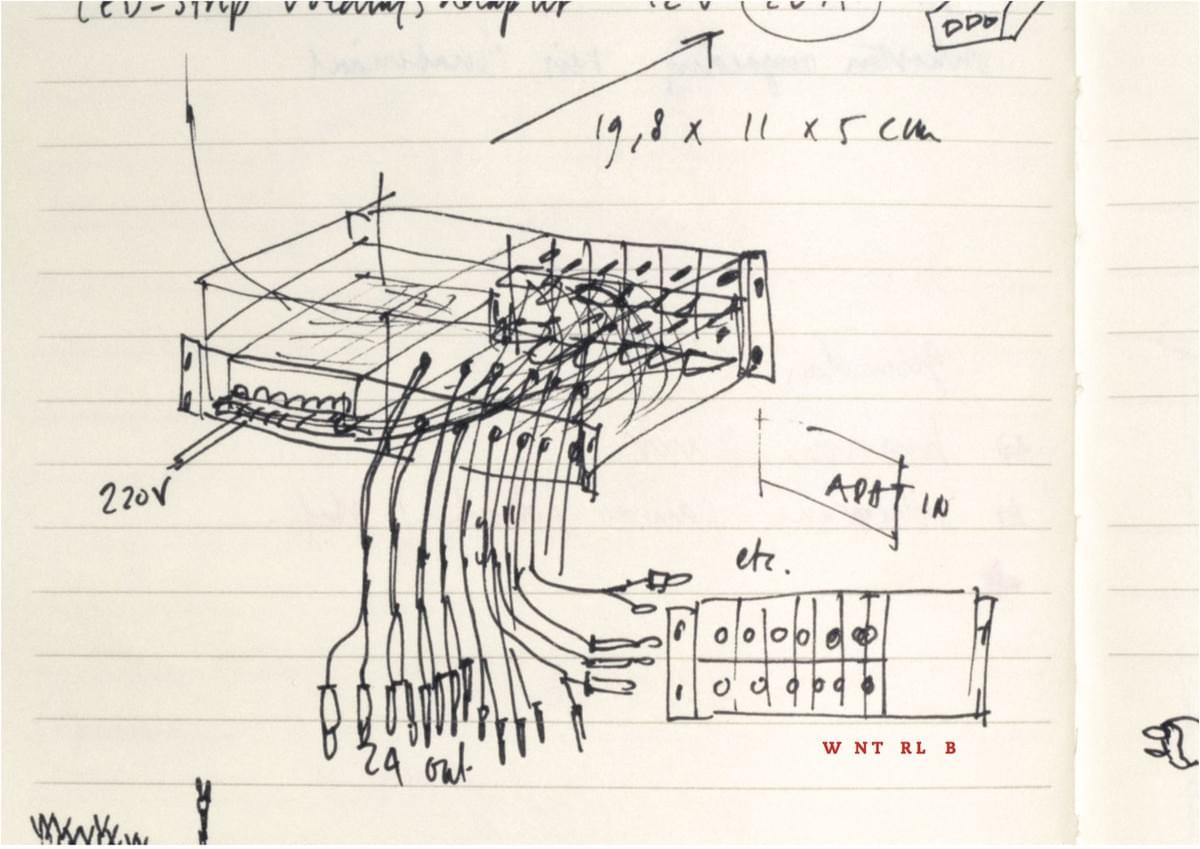 LED-strip voedings adapter 12V 20A
19,8 x 11 x 5 cm
220V
ADAPT IN
etc.
24 out
W NT RL B